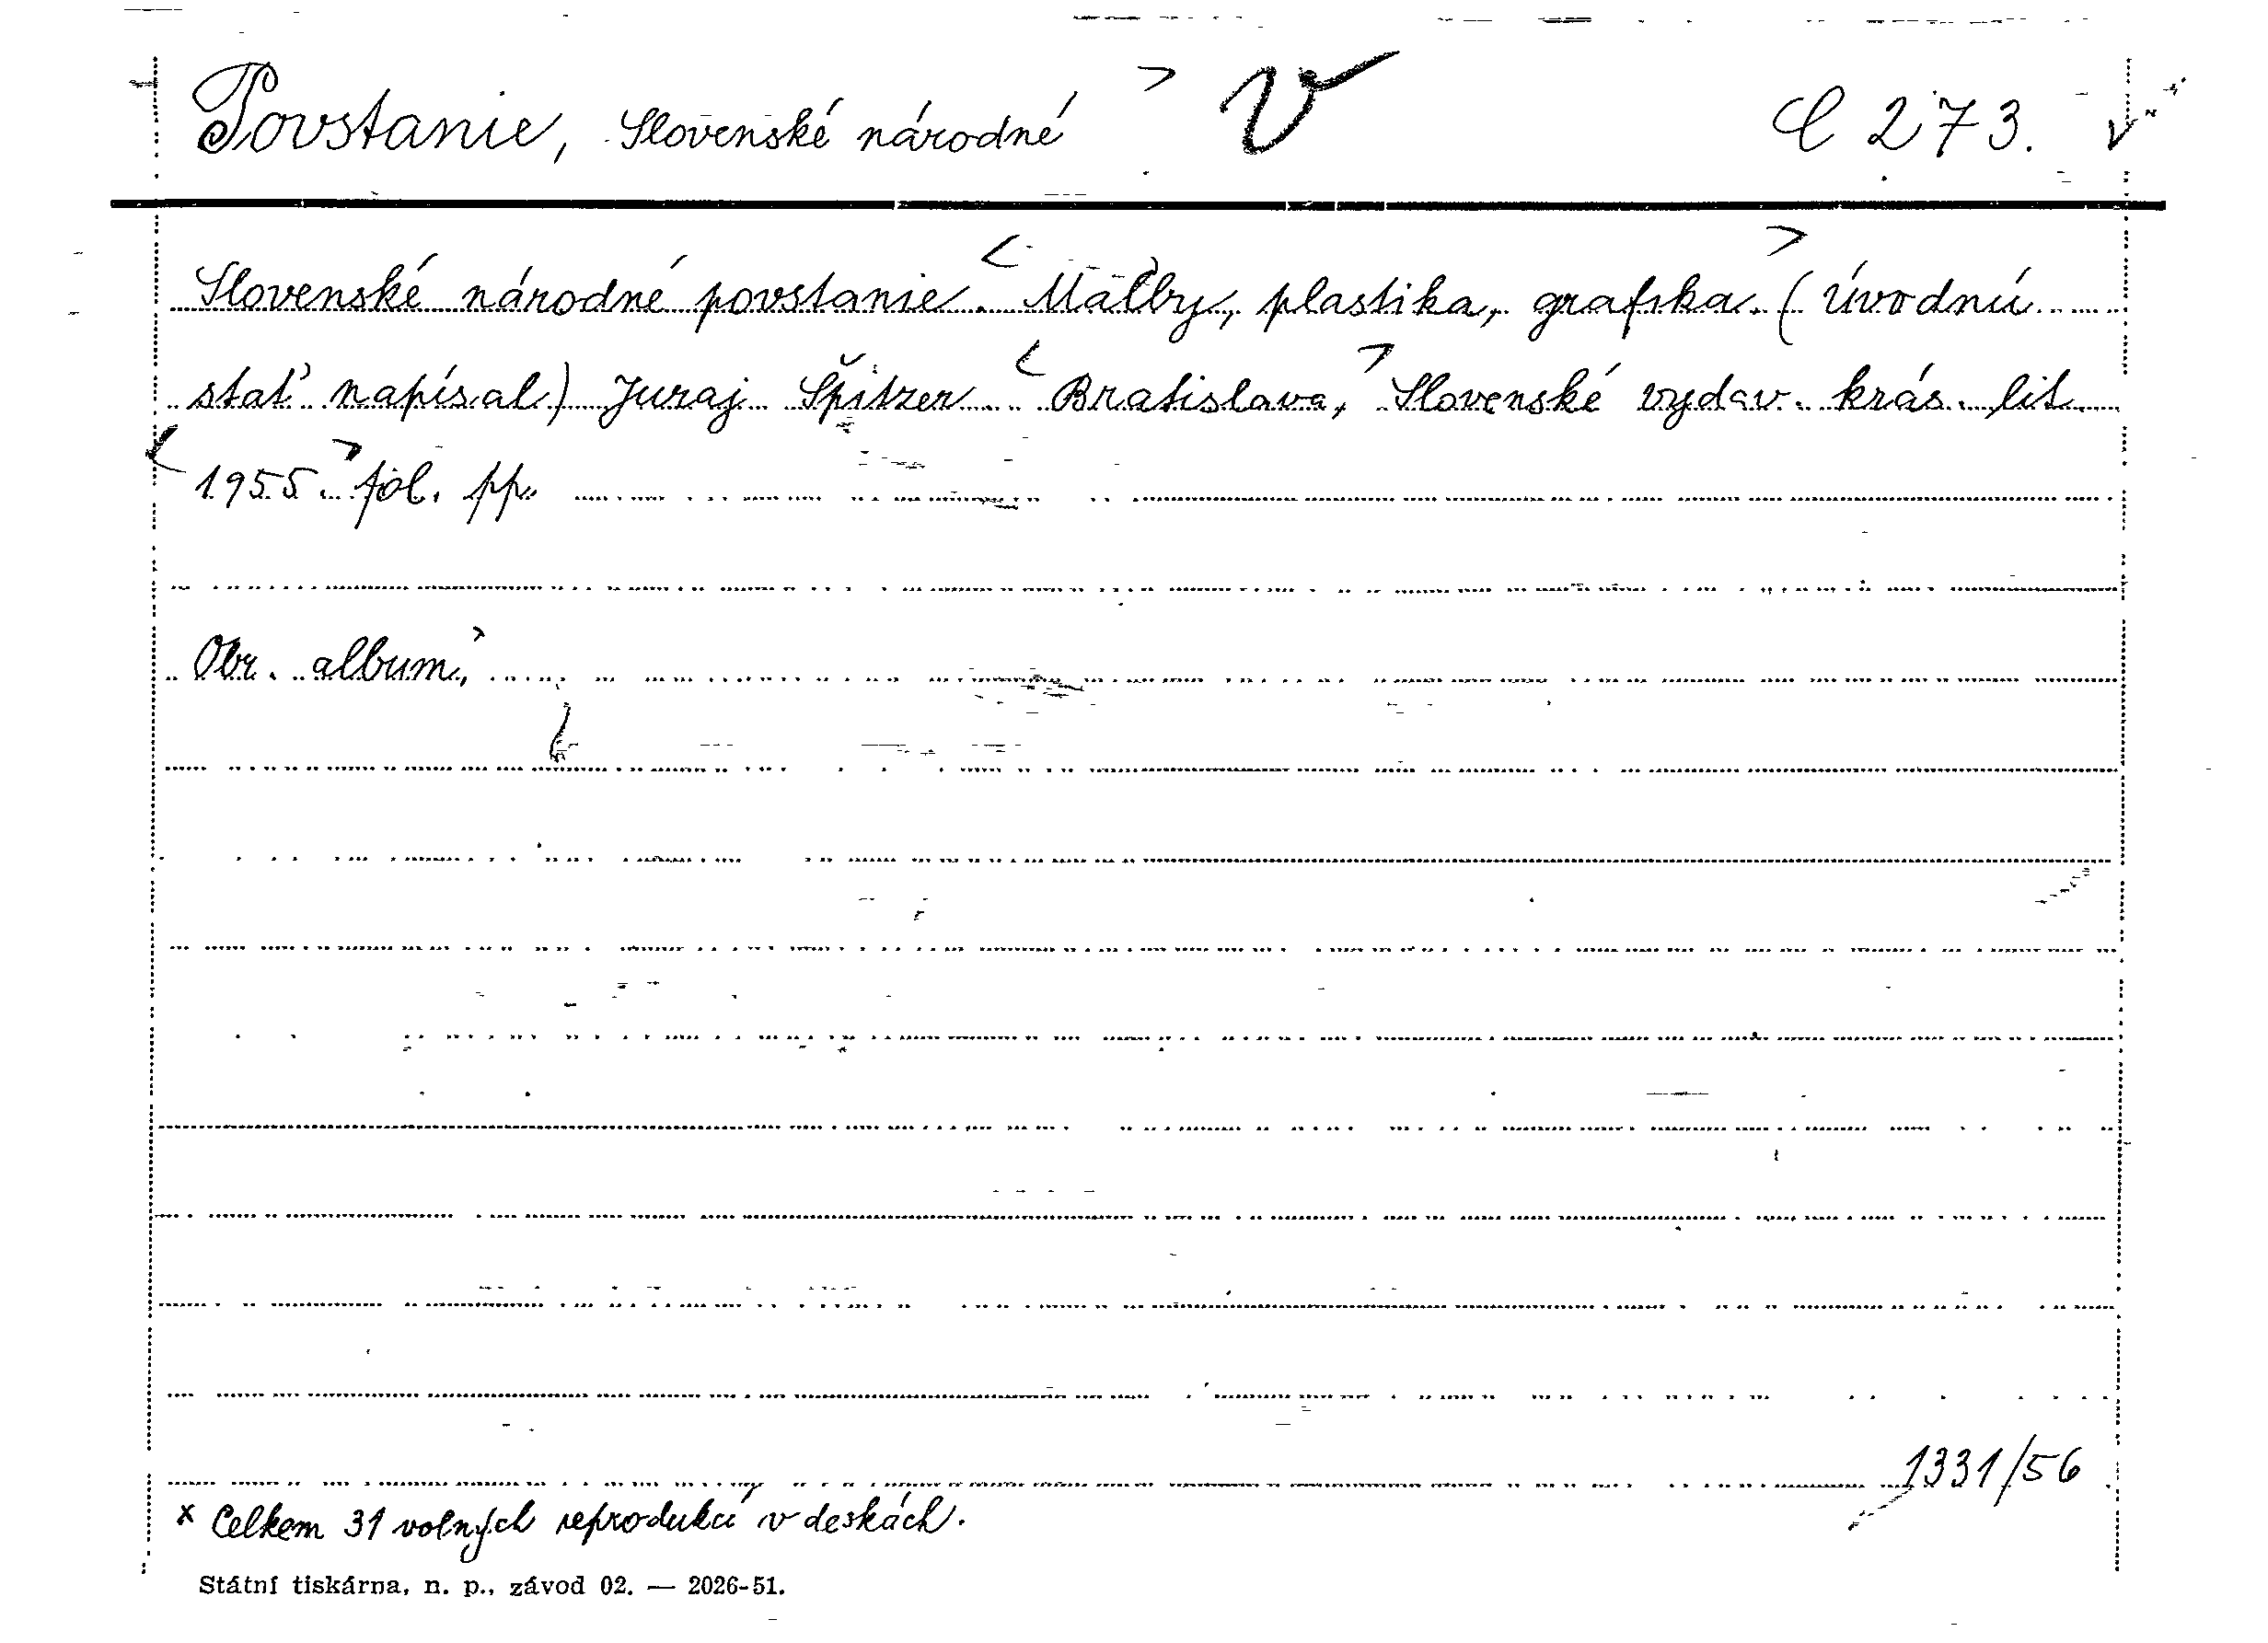 Povstanie, Slovenské národné > V C 273.
Slovenské národné povstanie. < Maľby, plastika, grafika. > (Úvodnú
stať napísal) Juraj Špitzer. < Bratislava, > Slovenské vydav. krás. lit.
< 1955. > fol. pp.
Obr. album.
1331/56
x Celkem 31 volných reprodukcí v deskách.
Státní tiskárna, n. p., závod 02. — 2026-51.